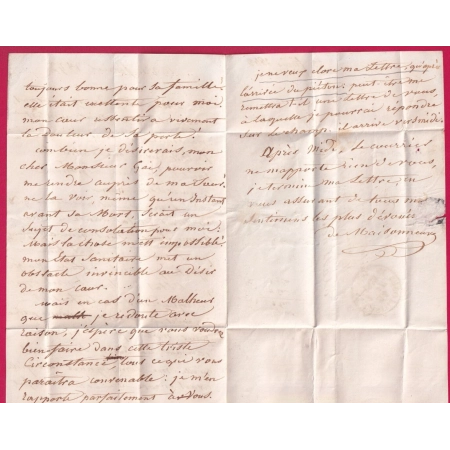 toujours bonne pour sa famille
elle était excellente pour moi,
mon cœur ressentira vivement
la douleur de sa perte!
combien je désirerais, mon
cher Monsieur Gai, pouvoir
me rendre auprès de ma Sœur.
ne la voir, même qu'un Instant
avant sa Mort. Serait un
Sujet de consolation pour moi.
Mais la chose m'est impossible.
mon état Sanitaire met un
obstacle invincible au désir
de mon cœur.
mais en cas d'un Malheur
que je redoute avec
raison, j'espère que vous voudrez
bien faire dans cette triste
Circonstance, tous ce qui vous
paraîtra convenable: je m'en
rapporte parfaitement à vous.
je ne veux clore ma lettre, qu'après
l'arrivée du piéton: peut être me
remettra t-il une lettre de vous,
à laquelle je pourrai répondre
Sur le champ. il arrive vers midi.
Après Midi, le courrier
ne m'apporte rien de vous,
je termine ma lettre, en
vous assurant de tous mes
Sentiments les plus dévoués
de Maisonneuve